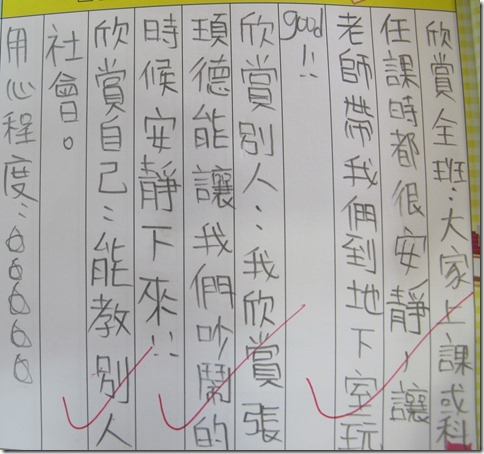 欣賞全班：大家上課或科
任課時都很安靜，讓
老師帶我們到地下室玩
good!!
欣賞別人：我欣賞張
頊德能讓我們吵鬧的
時候安靜下來!!
欣賞自己：能教別人
社會。
用心程度：66666